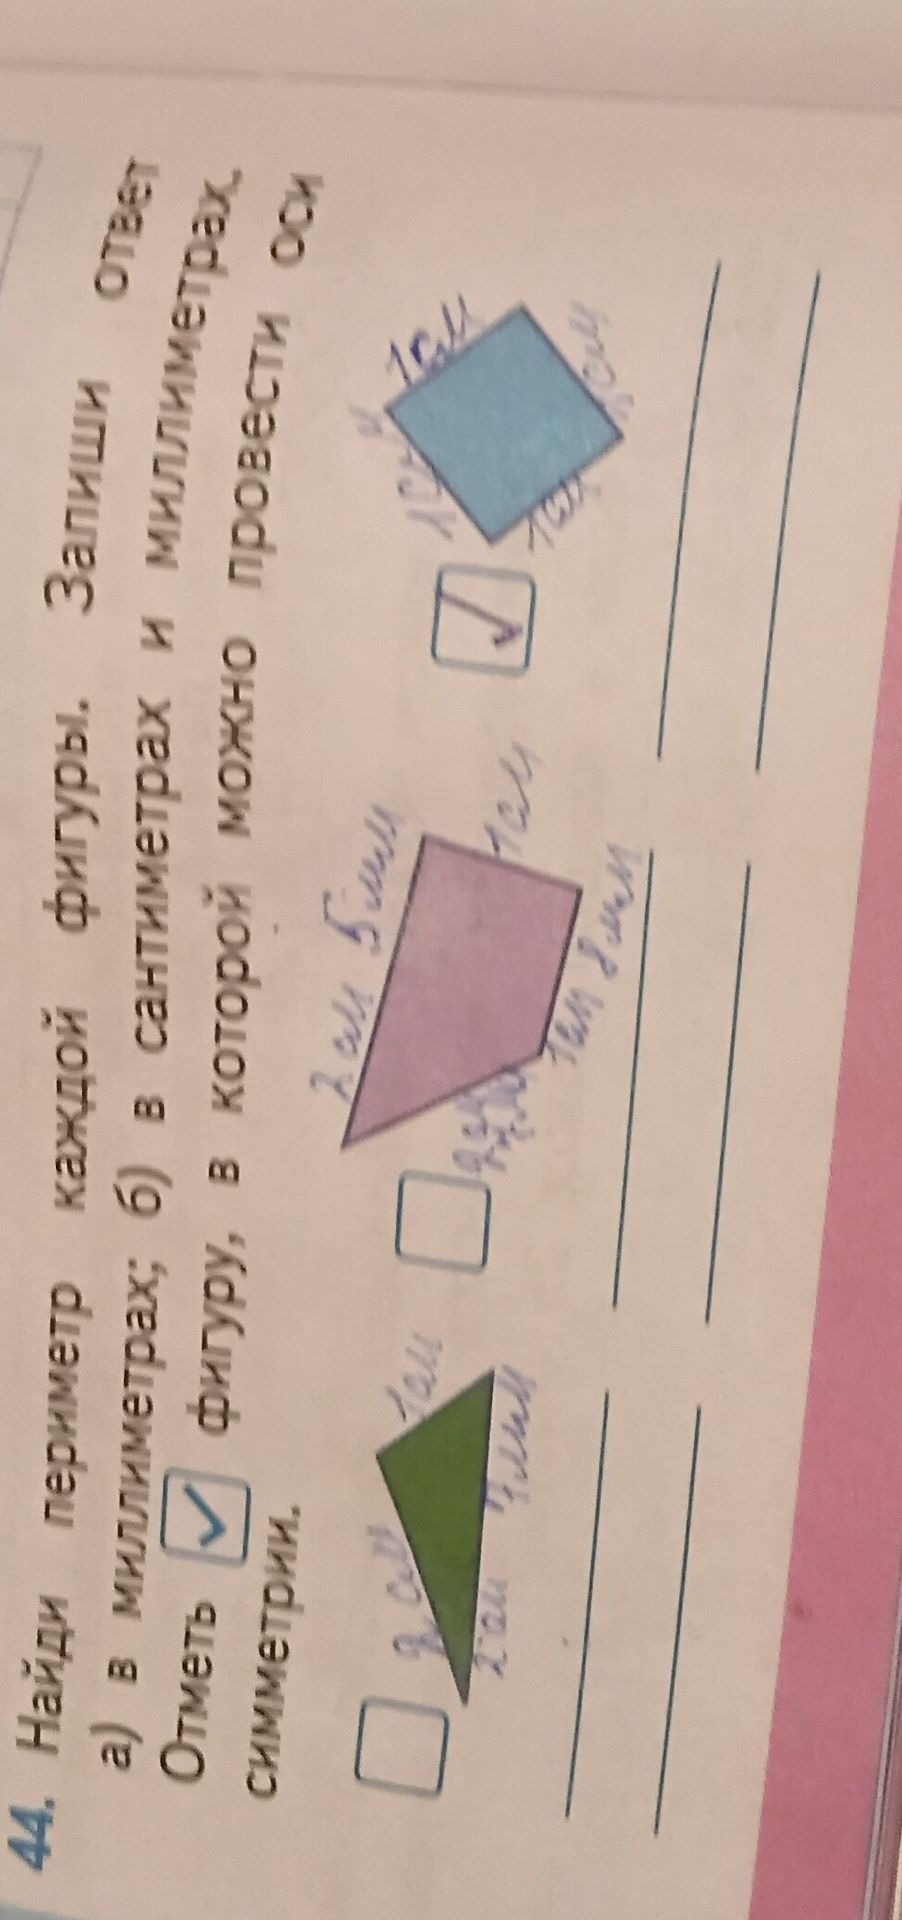 44. Найди периметр каждой фигуры. Запиши ответ
а) в миллиметрах; б) в сантиметрах и миллиметрах.
Отметь фигуру, в которой можно провести оси
симметрии.
2 см
1 см
2 см 7 мм
2 см 5 мм
1 см
1 см
1 см
1 см
1 см
1 см